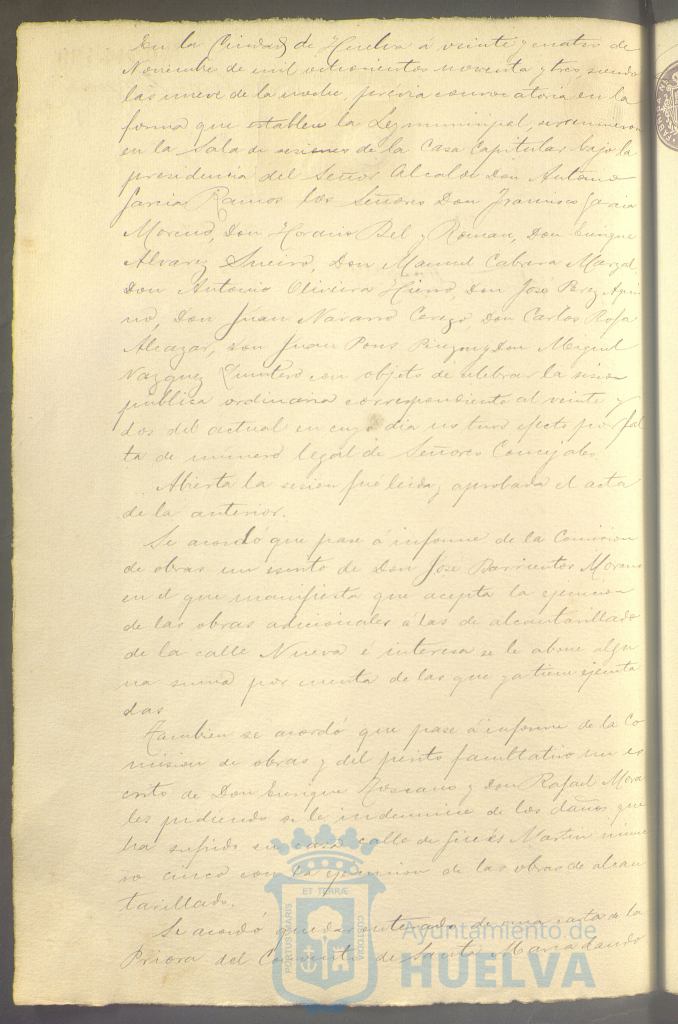 En la Ciudad de Huelva á veinte y cuatro de
Noviembre de mil ochocientos noventa y tres, siendo
las nueve de la noche, previa convocatoria en la
forma que establece la Ley municipal, se reunieron
en la Sala de sesiones de la Casa Capitular bajo la
presidencia del Señor Alcalde Don Antonio
Garcia Ramos los Señores Don Francisco Garcia
Moreno, Don Horacio Bel y Roman, Don Enrique
Alvarez Sueiro, Don Manuel Cabrera Marzal,
Don Antonio Oliveira Hierro, Don José Perez
Don Juan Navarro Don Carlos Rofa
Alcazar, Don Juan Pons y Don Miguel
Vazquez Quintero con objeto de celebrar la sesion
publica ordinaria correspondiente al veinte y
dos del actual en cuyo dia no tuvo efecto por fal
ta de numero legal de Señores Concejales.
Abierta la sesion fué leida y aprobada el acta
de la anterior.
Se acordó que pase á informe de la Comision
de obras un escrito de Don José Barrientos Moreno
en el que manifiesta que acepta la ejecucion
de las obras adicionales á las de alcantarillado
de la calle Nueva é interesa se le abone algu
na suma por cuenta de las que ya tiene ejecuta
das
Tambien se acordó que pase á informe de la Co
mision de obras y del perito facultativo un es
crito de Don Enrique y Don Rafael Mora
les pidiendo se le indemnice de los daños que
ha sufrido su casa calle de Ginés Martin nume
ro cinco con la ejecucion de las obras de alcan
tarillado.
Se acordó quedar enterado de una carta de la
Priora del Convento de Santa Maria dando
PORTUS MARIS
ET TERRÆ
CUSTODIA
Ayuntamiento de
HUELVA